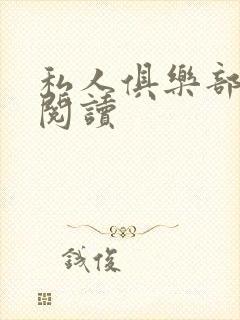 私人俱樂部
閱讀
誠俊